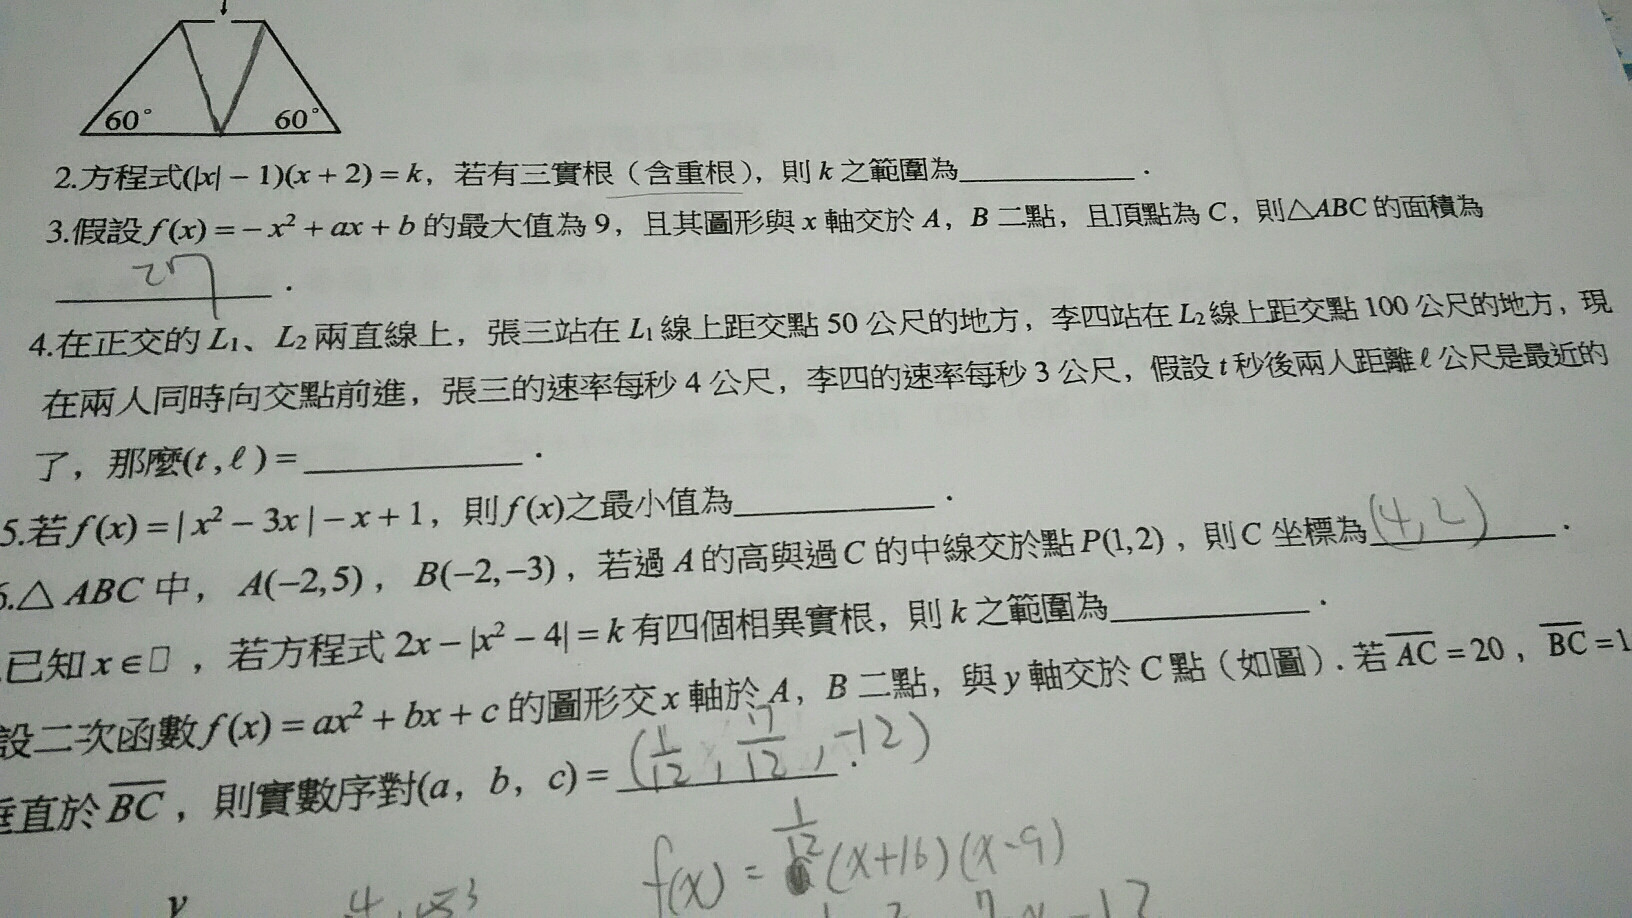 60° 60°
2.方程式(|x| − 1)(x + 2) = k，若有三實根（含重根），則 k 之範圍為____________．
3.假設 f(x) = − x² + ax + b 的最大值為 9，且其圖形與 x 軸交於 A，B 二點，且頂點為 C，則△ABC 的面積為
27．
4.在正交的 L₁、L₂ 兩直線上，張三站在 L₁ 線上距交點 50 公尺的地方，李四站在 L₂ 線上距交點 100 公尺的地方，現
在兩人同時向交點前進，張三的速率每秒 4 公尺，李四的速率每秒 3 公尺，假設 t 秒後兩人距離 ℓ 公尺是最近的
了，那麼(t , ℓ ) = ____________．
5.若 f(x) = | x² − 3x | − x + 1，則 f(x)之最小值為____________．
6.△ ABC 中， A(−2,5)， B(−2,−3)，若過 A 的高與過 C 的中線交於點 P(1,2)，則 C 坐標為(4,2)．
.已知 x ∈ □ ，若方程式 2x − |x² − 4| = k 有四個相異實根，則 k 之範圍為____________．
設二次函數 f(x) = ax² + bx + c 的圖形交 x 軸於 A，B 二點，與 y 軸交於 C 點（如圖）．若 AC = 20，BC = 1
垂直於 BC，則實數序對(a，b，c) = (1/12, 7/12, -12)．
f(x) = 1/12 (x+16)(x-9)
y